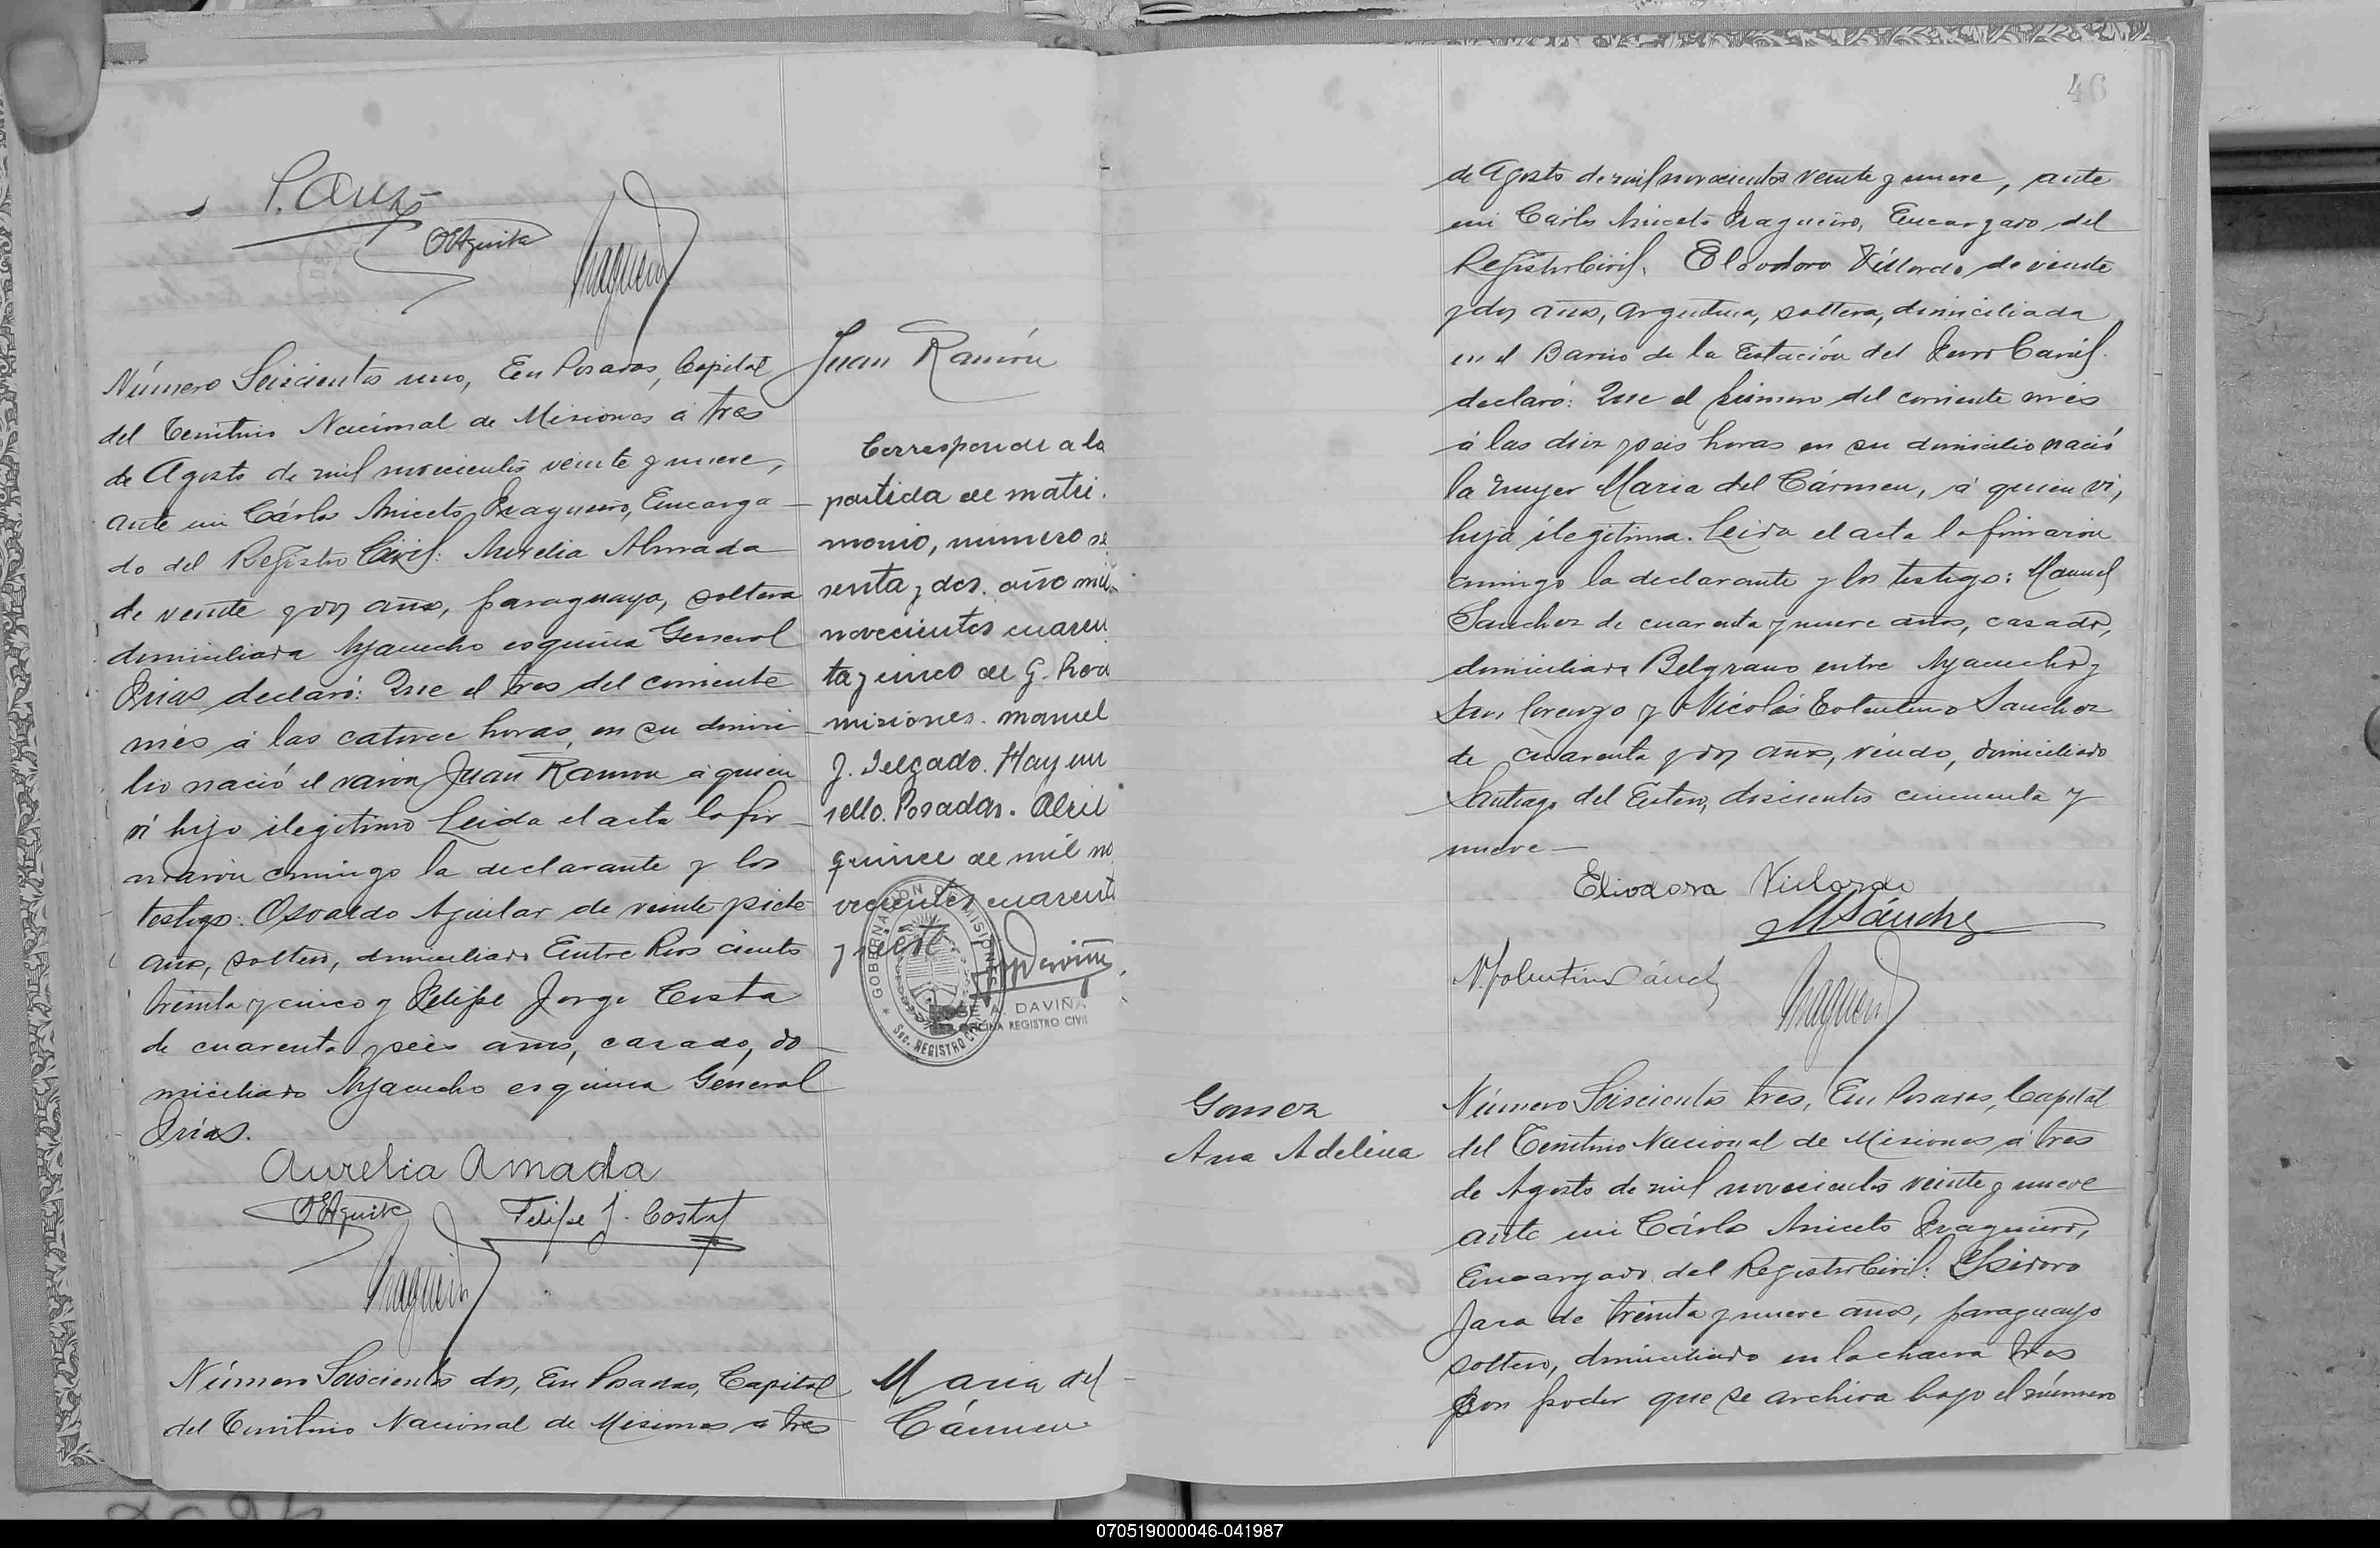 Número Seiscientos uno, En Posadas, Capital
del Territorio Nacional de Misiones á tres
de Agosto de mil novecientos veinte y nueve,
ante mi Cárlos Aniceto Fragueiro, Encarga
do del Registro Civil: Aurelia Almada
de veinte y dos años, paraguaya, soltera
domiciliada Ayacucho esquina General
Frias declaró: Que el tres del corriente
mes á las catorce horas, en su domici
lio nació el varon Juan Ramon á quien
ví hijo ilegitimo Leida el acta la fir
maron conmigo la declarante y los
testigos: Osvaldo Aguilar de veinte y siete
años, soltero, domiciliado Entre Rios ciento
treinta y cinco y Felipe Jorge Costa
de cuarenta y seis años, casado, do
miciliado Ayacucho esquina General
Frias.
Aurelia Amada
Felipe J. Costa
Juan Ramón
Corresponde a la
partida de matri.
monio, número se
senta y dos. año mil
novecientos cuaren
ta y cinco de G. Roca
misiones. manuel
J. Delgado. Hay un
sello. Posadas. Abril
quince de mil no
vecientos cuarenta
y siete
GOBERNACION DE MISIONES
Sec. REGISTRO CIVIL
JOSE A. DAVIÑA
OFICINA REGISTRO CIVIL
Número Seiscientos dos, En Posadas, Capital
del Territorio Nacional de Misiones á tres
Maria del
Cármen
46
de Agosto de mil novecientos veinte y nueve, ante
mi Cárlos Aniceto Fragueiro, Encargado del
Registro Civil. Eleodora Villordo de veinte
y dos años, argentina, soltera, domiciliada
en el Barrio de la Estación del Ferro Carril.
declaró: Que el primero del corriente mes
á las diez y seis horas en su domicilio nació
la mujer Maria del Cármen, á quien ví,
hija ilegitima. Leida el acta la firmaron
conmigo la declarante y los testigos: Manuel
Sanchez de cuarenta y nueve años, casado,
domiciliado Belgrano entre Ayacucho y
San Lorenzo y Nicolás Tolentino Sanchez
de cuarenta y dos años, viudo, domiciliado
Santiago del Estero, doscientos cincuenta y
nueve —
Eliodora Villordo
M Sánchez
N. Tolentino Sánchez
Gomez
Ana Adelina
Número Seiscientos tres, En Posadas, Capital
del Territorio Nacional de Misiones á tres
de Agosto de mil novecientos veinte y nueve
ante mi Cárlos Aniceto Fragueiro,
Encargado del Registro Civil: Ysidoro
Jara de treinta y nueve años, paraguayo
soltero, domiciliado en la chacra tres
con poder que se archiva bajo el número
070519000046-041987